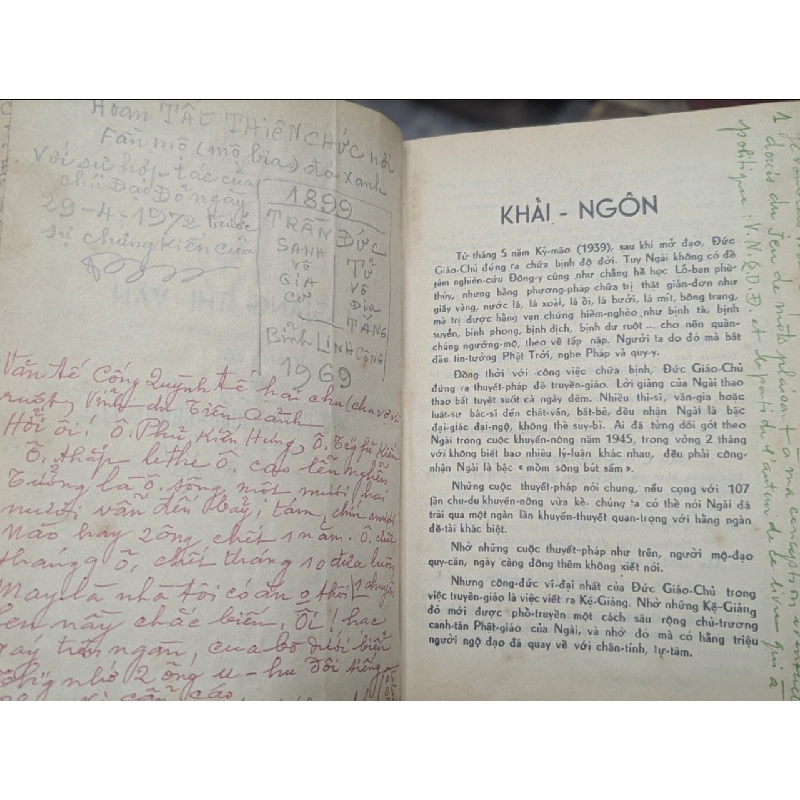 Hoàn TẤT THIÊN CHỨC nơi
Fần mộ (mộ bia) đá xanh
Với sự hợp tác của
chú Đạo Đỏ ngày
29-4-1972 trước
sự chứng kiến của
1899
TRẦN ĐỨC
SANH TỬ
VÔ VÔ
GIA ĐỊA
CƯ TÁNG
BÌNH LINH CỘNG
1969
Văn tế Cống Quỳnh tế hai cha (cha vợ và
ruột) Vĩnh du Tiên Cảnh
Hỡi ôi! Ô. Phủ Kiến Hưng, Ô. Kiến
Ô. thấp le the ô. cao lễu nghễu
Tưởng là ô. sống một mươi hai
mươi vẫn đến bảy, tám, chín mươi
Nào hay 2 ông chết 1 năm. Ô. chết
tháng 9 ô. chết tháng 10 đưa luôn
May là nhà tôi có ăn ở thôi 1 chuyến
ôi! hạc
2 ông u-hu đôi tiếng
KHẢI - NGÔN
Từ tháng 5 năm Kỷ-mão (1939), sau khi mở đạo, Đức
Giáo-Chủ đứng ra chữa bịnh độ đời. Tuy Ngài không có đề
tâm nghiên-cứu Đông-y cũng như chẳng hề học Lỗ-ban phù-
thủy, nhưng bằng phương-pháp chữa trị thật giản-đơn như
giấy vàng, nước lã, lá xoài, lá ổi, lá bưởi, lá mít, bông trang,
mà trị được hằng vạn chứng hiểm-nghèo như bịnh tà, bịnh
suyển, bịnh phong, bịnh dịch, bịnh dư ruột ... cho nên quần-
chúng ngưỡng-mộ, theo về tấp nập. Người ta do đó mà bắt
đầu tin-tưởng Phật Trời, nghe Pháp và quy-y.
Đồng thời với công việc chữa bịnh, Đức Giáo-Chủ
đứng ra thuyết-pháp để truyền-giáo. Lời giảng của Ngài thao
thao bất tuyệt suốt cả ngày đêm. Nhiều thi-sĩ, văn-gia hoặc
luật-sư bác-sĩ đến chất-vấn, bắt-bẻ, đều nhận Ngài là bậc
đại-giác đại-ngộ, không thể suy-bì. Ai đã từng dõi gót theo
Ngài trong cuộc khuyến-nông năm 1945, trong vòng 2 tháng
với không biết bao nhiêu lý-luận khác nhau, đều phải công-
nhận Ngài là bậc « mồm sông bút sấm ».
Những cuộc thuyết-pháp nói chung, nếu cọng với 107
lần chu-du khuyến-nông vừa kể. chúng ta có thể nói Ngài đã
trải qua một ngàn lần khuyến-thuyết quan-trọng với hằng ngàn
đề-tài khác biệt.
Nhờ những cuộc thuyết-pháp như trên, người mộ-đạo
quy-căn, ngày càng đông thêm không xiết nổi.
Nhưng công-đức vĩ-đại nhất của Đức Giáo-Chủ trong
việc truyền-giáo là việc viết ra Kệ-Giảng. Nhờ những Kệ-Giảng
đó mới được phổ-truyền một cách sâu rộng chủ-trương
canh-tân Phật-giáo của Ngài, và nhờ đó mà có hằng triệu
người ngộ đạo đã quay về với chân-tính, tự-tâm.
jeu de mots plaisant à ma conception
politique : V.N.Q.D.Đ. et le parti de l'auteur de ce livre qui a